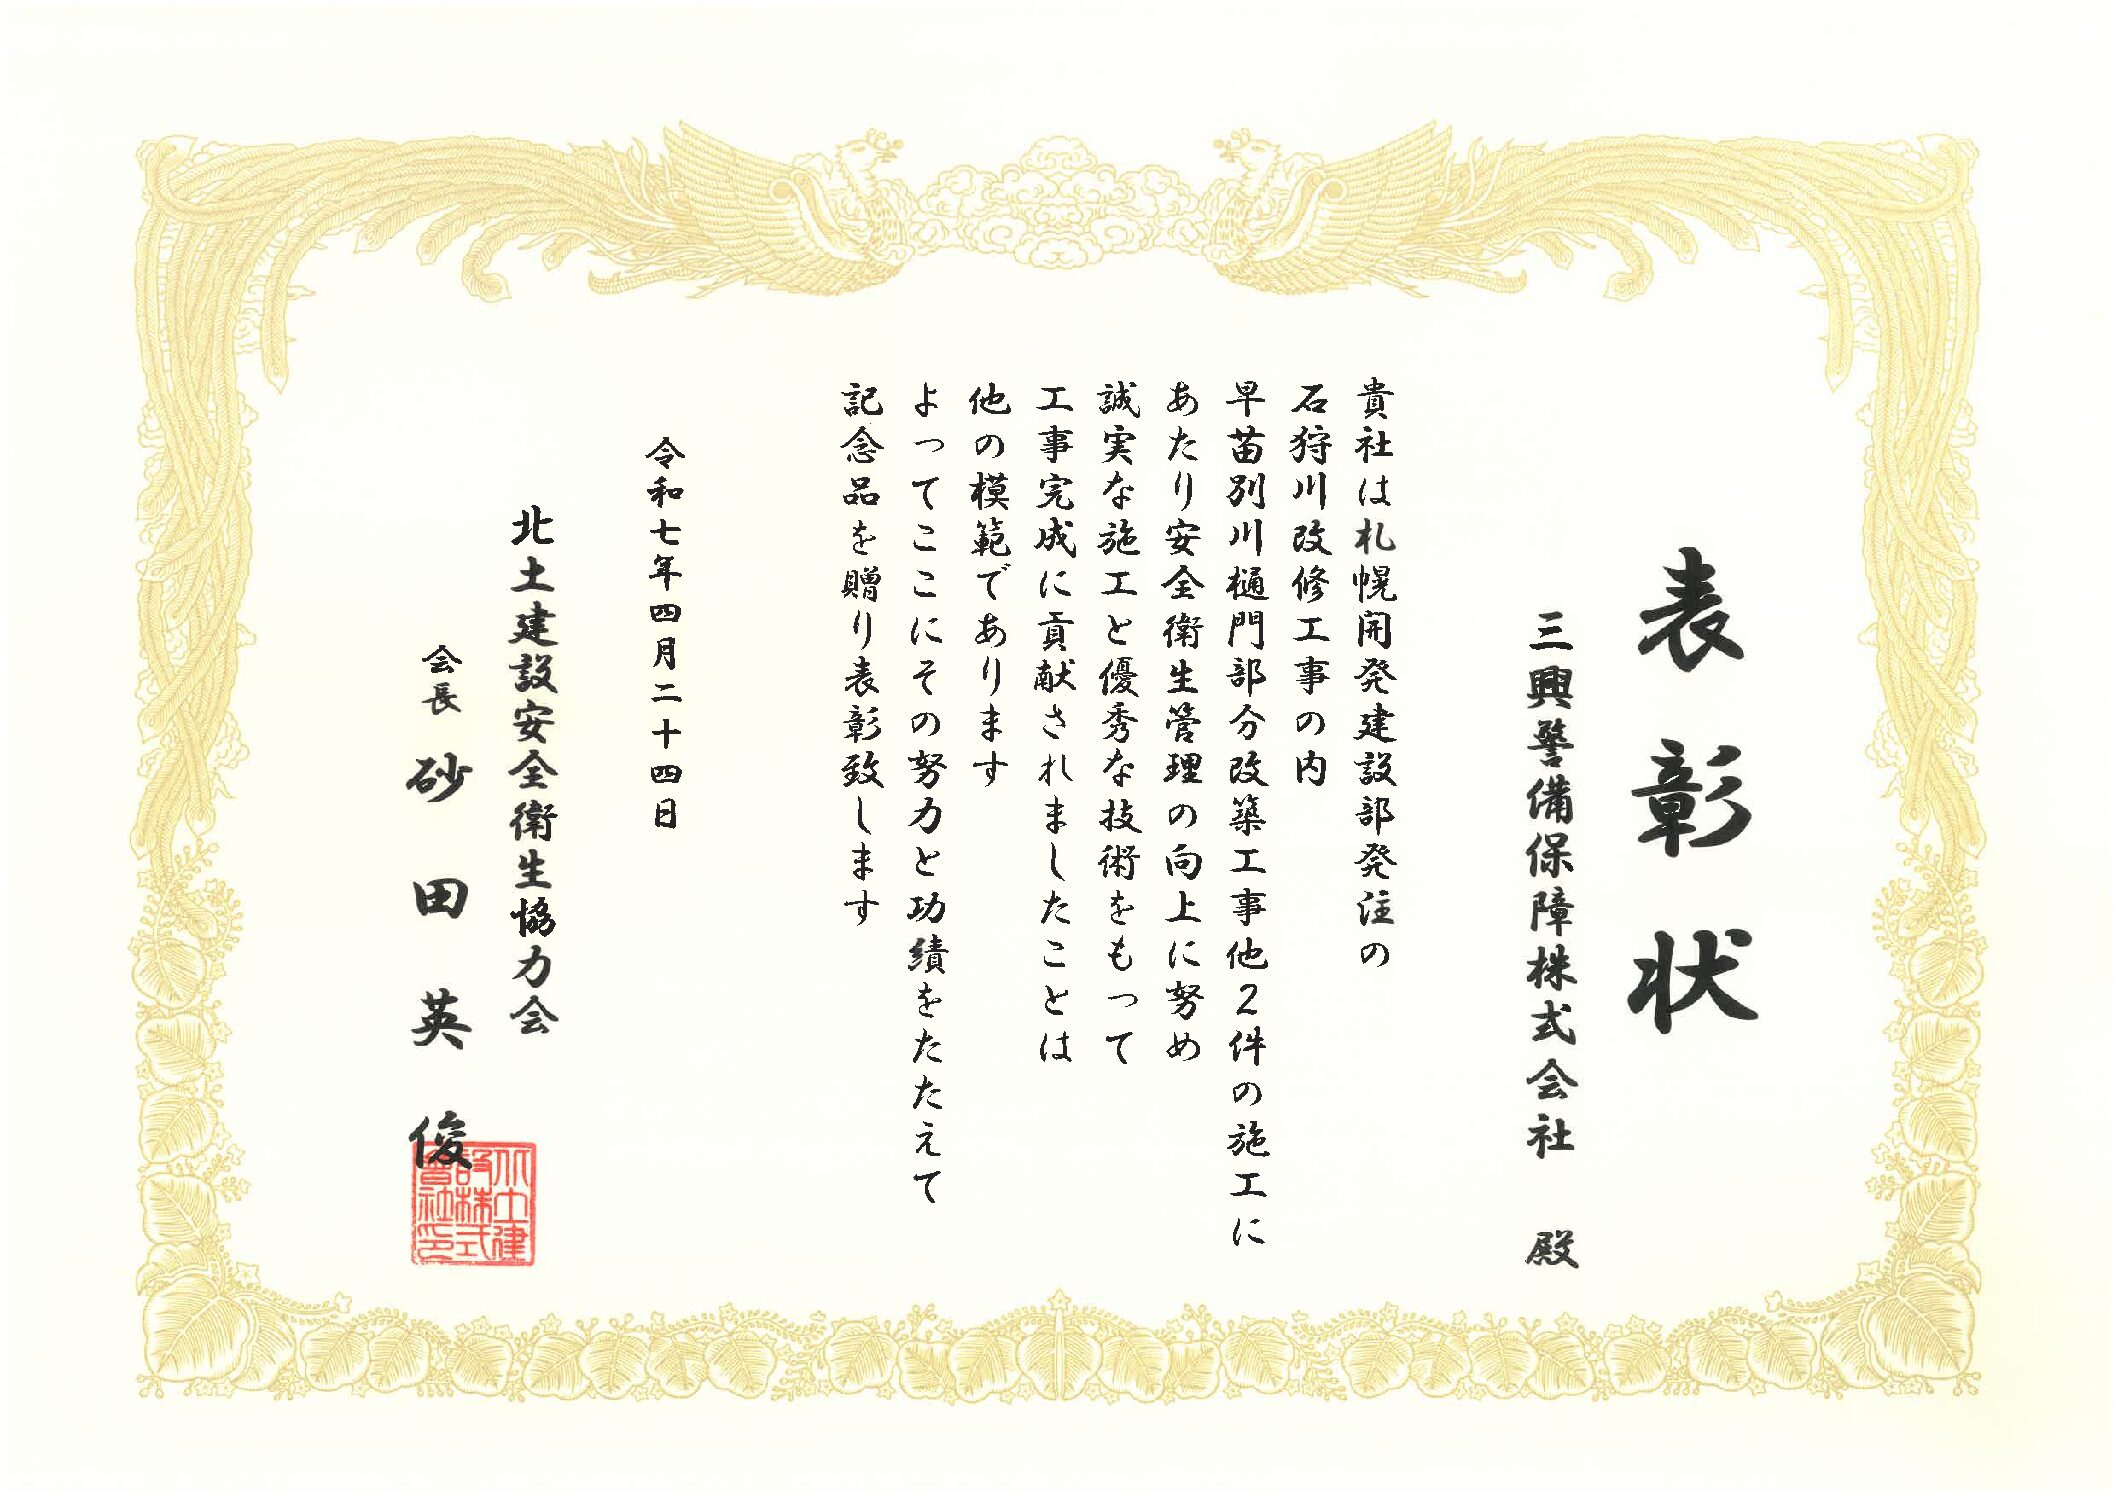 表彰状
三興警備保障株式会社 殿
貴社は札幌開発建設部発注の
石狩川改修工事の内
早苗別川樋門部分改築工事他2件の施工に
あたり安全衛生管理の向上に努め
誠実な施工と優秀な技術をもって
工事完成に貢献されましたことは
他の模範であります
よってここにその努力と功績をたたえて
記念品を贈り表彰致します
令和七年四月二十四日
北土建設安全衛生協力会
会長 砂田英俊
北土建
設株式
會社印